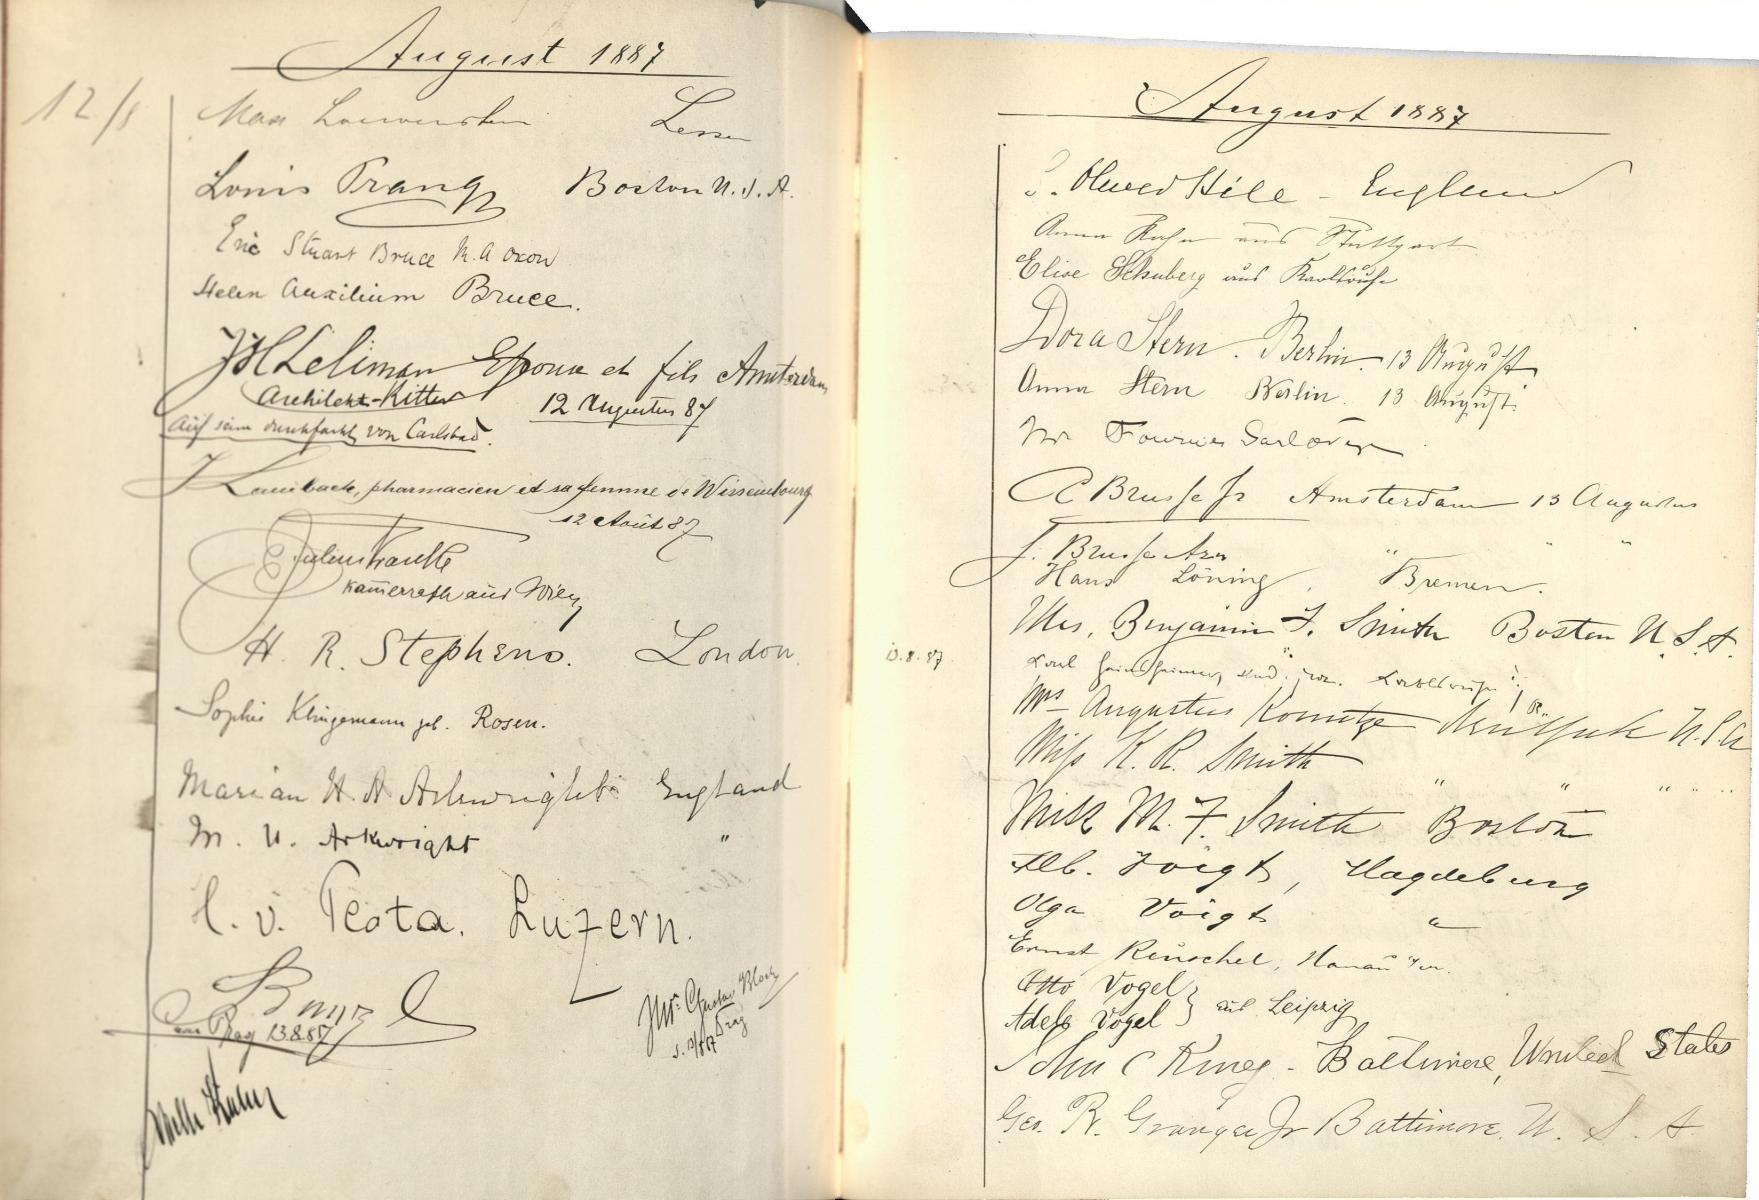 August 1887
12/8
Max Loewenstein
Louis Prang Boston U.S.A.
Eric Stuart Bruce M.A Oxon
Helen Auxilium Bruce.
JH Leliman Epouse et fils Amsterdam
Architekt-Ritter 12 Augustus 87
Auf seine von Carlsbad.
pharmacien et sa femme de Wissembourg
12 Août 87
Julius
aus Wien
H. R. Stephens. London.
Sophie Klingemann geb. Rosen.
Marian H A Arkwright England
M. U. Arkwright "
v. Luzern.
Gustav Bloch
Prag
Prag 13.8.87
August 1887
Hill - England
Anna Hahn aus Stuttgart
Elise Schuberg aus Karlsruhe
Dora Stern. Berlin. 13 August
Anna Stern Berlin. 13 August.
Fournier Sarlovèze
C Brusse Jr Amsterdam 13 Augustus
J. Brusse " " "
Hans Löning, Bremen.
Mrs. Benjamin F. Smith Boston U.S.A.
13.8.87
Mrs Augustus New York U.S.A
Miss K. R. Smith " " " " "
Miss M. F. Smith Boston
Alb. Voigt, Magdeburg
Olga Voigt "
Ernst Hanau
Otto Vogel
Adele Vogel } aus Leipzig
John C King - Baltimore, United States
Geo. R. Baltimore. U. S. A.